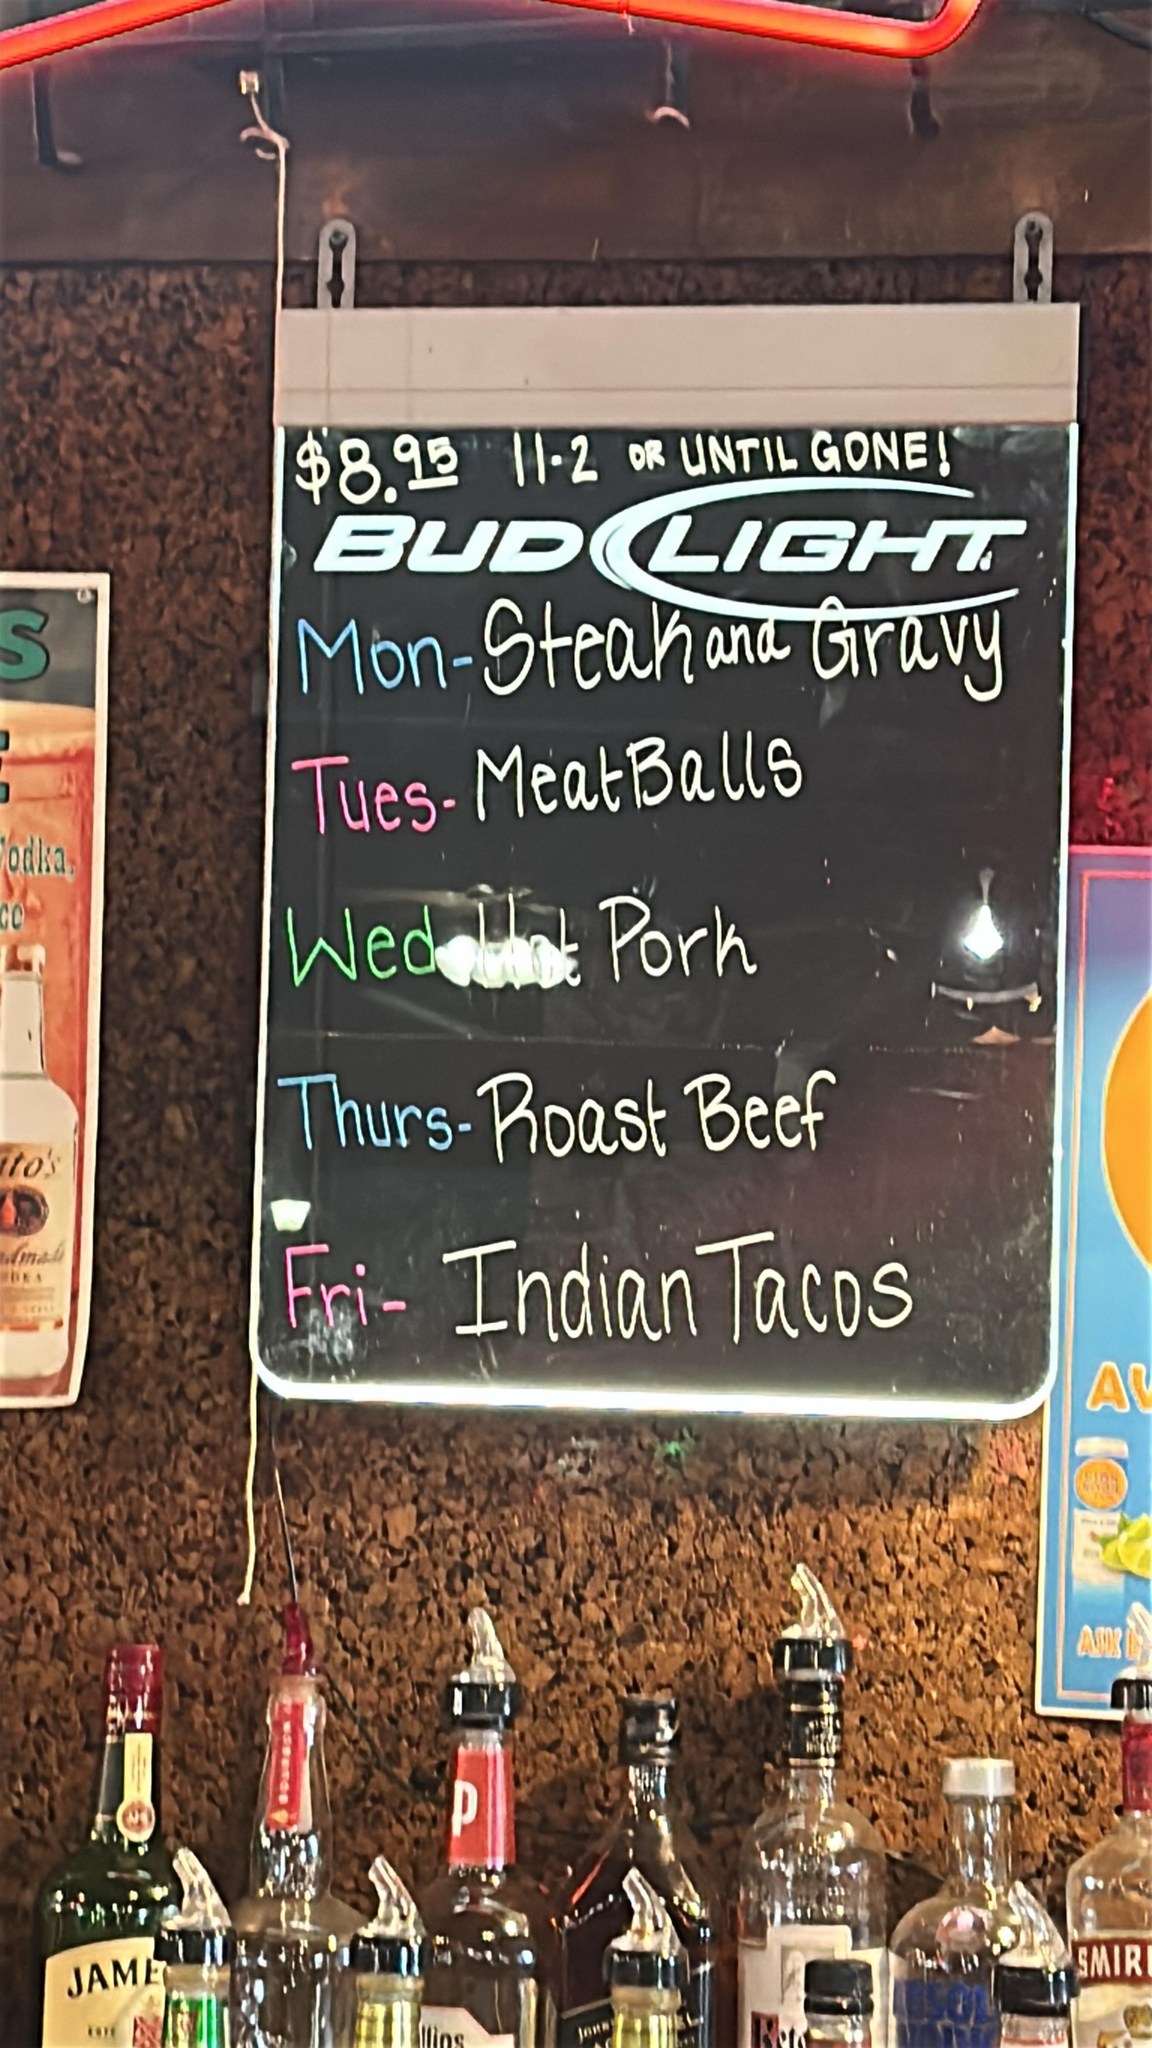 $8.95 11-2 OR UNTIL GONE!
BUD LIGHT
Mon- Steak and Gravy
Tues- MeatBalls
Wed Hot Pork
Thurs- Roast Beef
Fri- Indian Tacos
S
Vodka,
ito's
AV
ASK
P
JAME
llips
JOHN
Kete
BSOL
SMIR